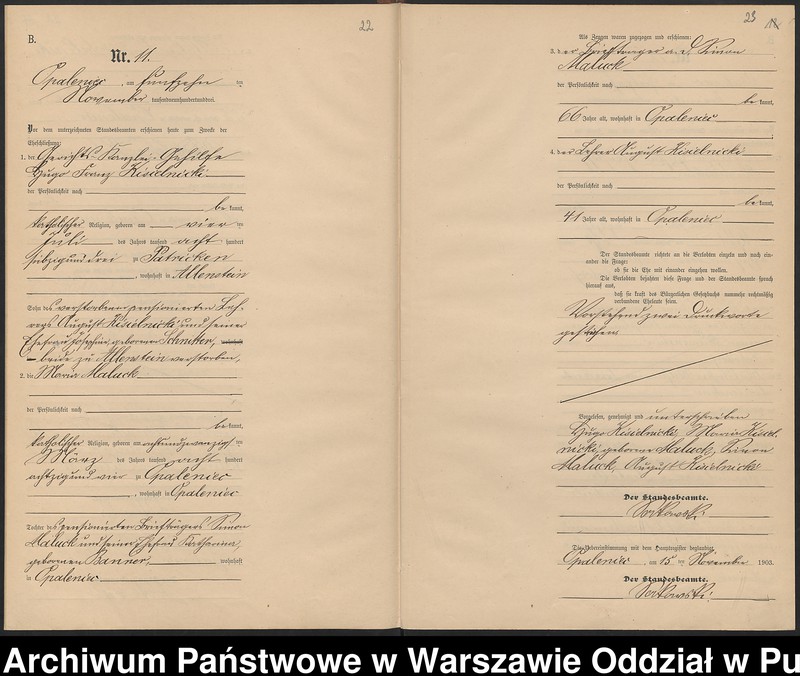 22
B.
Nr. 11.
Opaleniec, am fünfzehn ten
November tausendneunhundertunddrei.
Vor dem unterzeichneten Standesbeamten erschienen heute zum Zwecke der
Eheschließung:
1. der Gerichts-Kanzlei-Gehilfe
Hugo Franz Kisielnicki
der Persönlichkeit nach
be kannt,
katholischer Religion, geboren am vier ten
Juli des Jahres tausend acht hundert
siebzigunddrei zu Patricken
, wohnhaft in Allenstein
Sohn des verstorbenen pensionierten Leh-
rers August Kisielnicki und seiner
Ehefrau Josephine, geborener Schnitter, wohnhaft
beide zu Allenstein verstorben,
2. die Maria Maluck
der Persönlichkeit nach
be kannt,
katholischer Religion, geboren am achtundzwanzigs ten
März des Jahres tausend acht hundert
achtzigundvier zu Opaleniec
, wohnhaft in Opaleniec
Tochter des pensionierten Briefträgers Simon
Maluck und seiner Ehefrau Katharina,
geborenen Banner, wohnhaft
in Opaleniec
23
Als Zeugen waren zugezogen und erschienen:
3. der Briefträger a. D. Simon
Maluck
der Persönlichkeit nach
be kannt,
66 Jahre alt, wohnhaft in Opaleniec
4. der Lehrer August Kisielnicki
der Persönlichkeit nach
be kannt,
41 Jahre alt, wohnhaft in Opaleniec
Der Standesbeamte richtete an die Verlobten einzeln und nach ein-
ander die Frage:
ob sie die Ehe mit einander eingehen wollen.
Die Verlobten bejahten diese Frage und der Standesbeamte sprach
hierauf aus,
daß sie kraft des Bürgerlichen Gesetzbuchs nunmehr rechtmäßig
verbundene Eheleute seien.
Vorstehend zwei Druckworte
gestrichen
Vorgelesen, genehmigt und unterschrieben
Hugo Kisielnicki, Maria Kisiel-
nicki, geborene Maluck, Simon
Maluck, August Kisielnicki
Der Standesbeamte.
Sadkowski
Die Uebereinstimmung mit dem Hauptregister beglaubigt
Opaleniec, am 15 ten November 1903.
Der Standesbeamte.
Sadkowski
Archiwum Państwowe w Warszawie Oddział w Pu